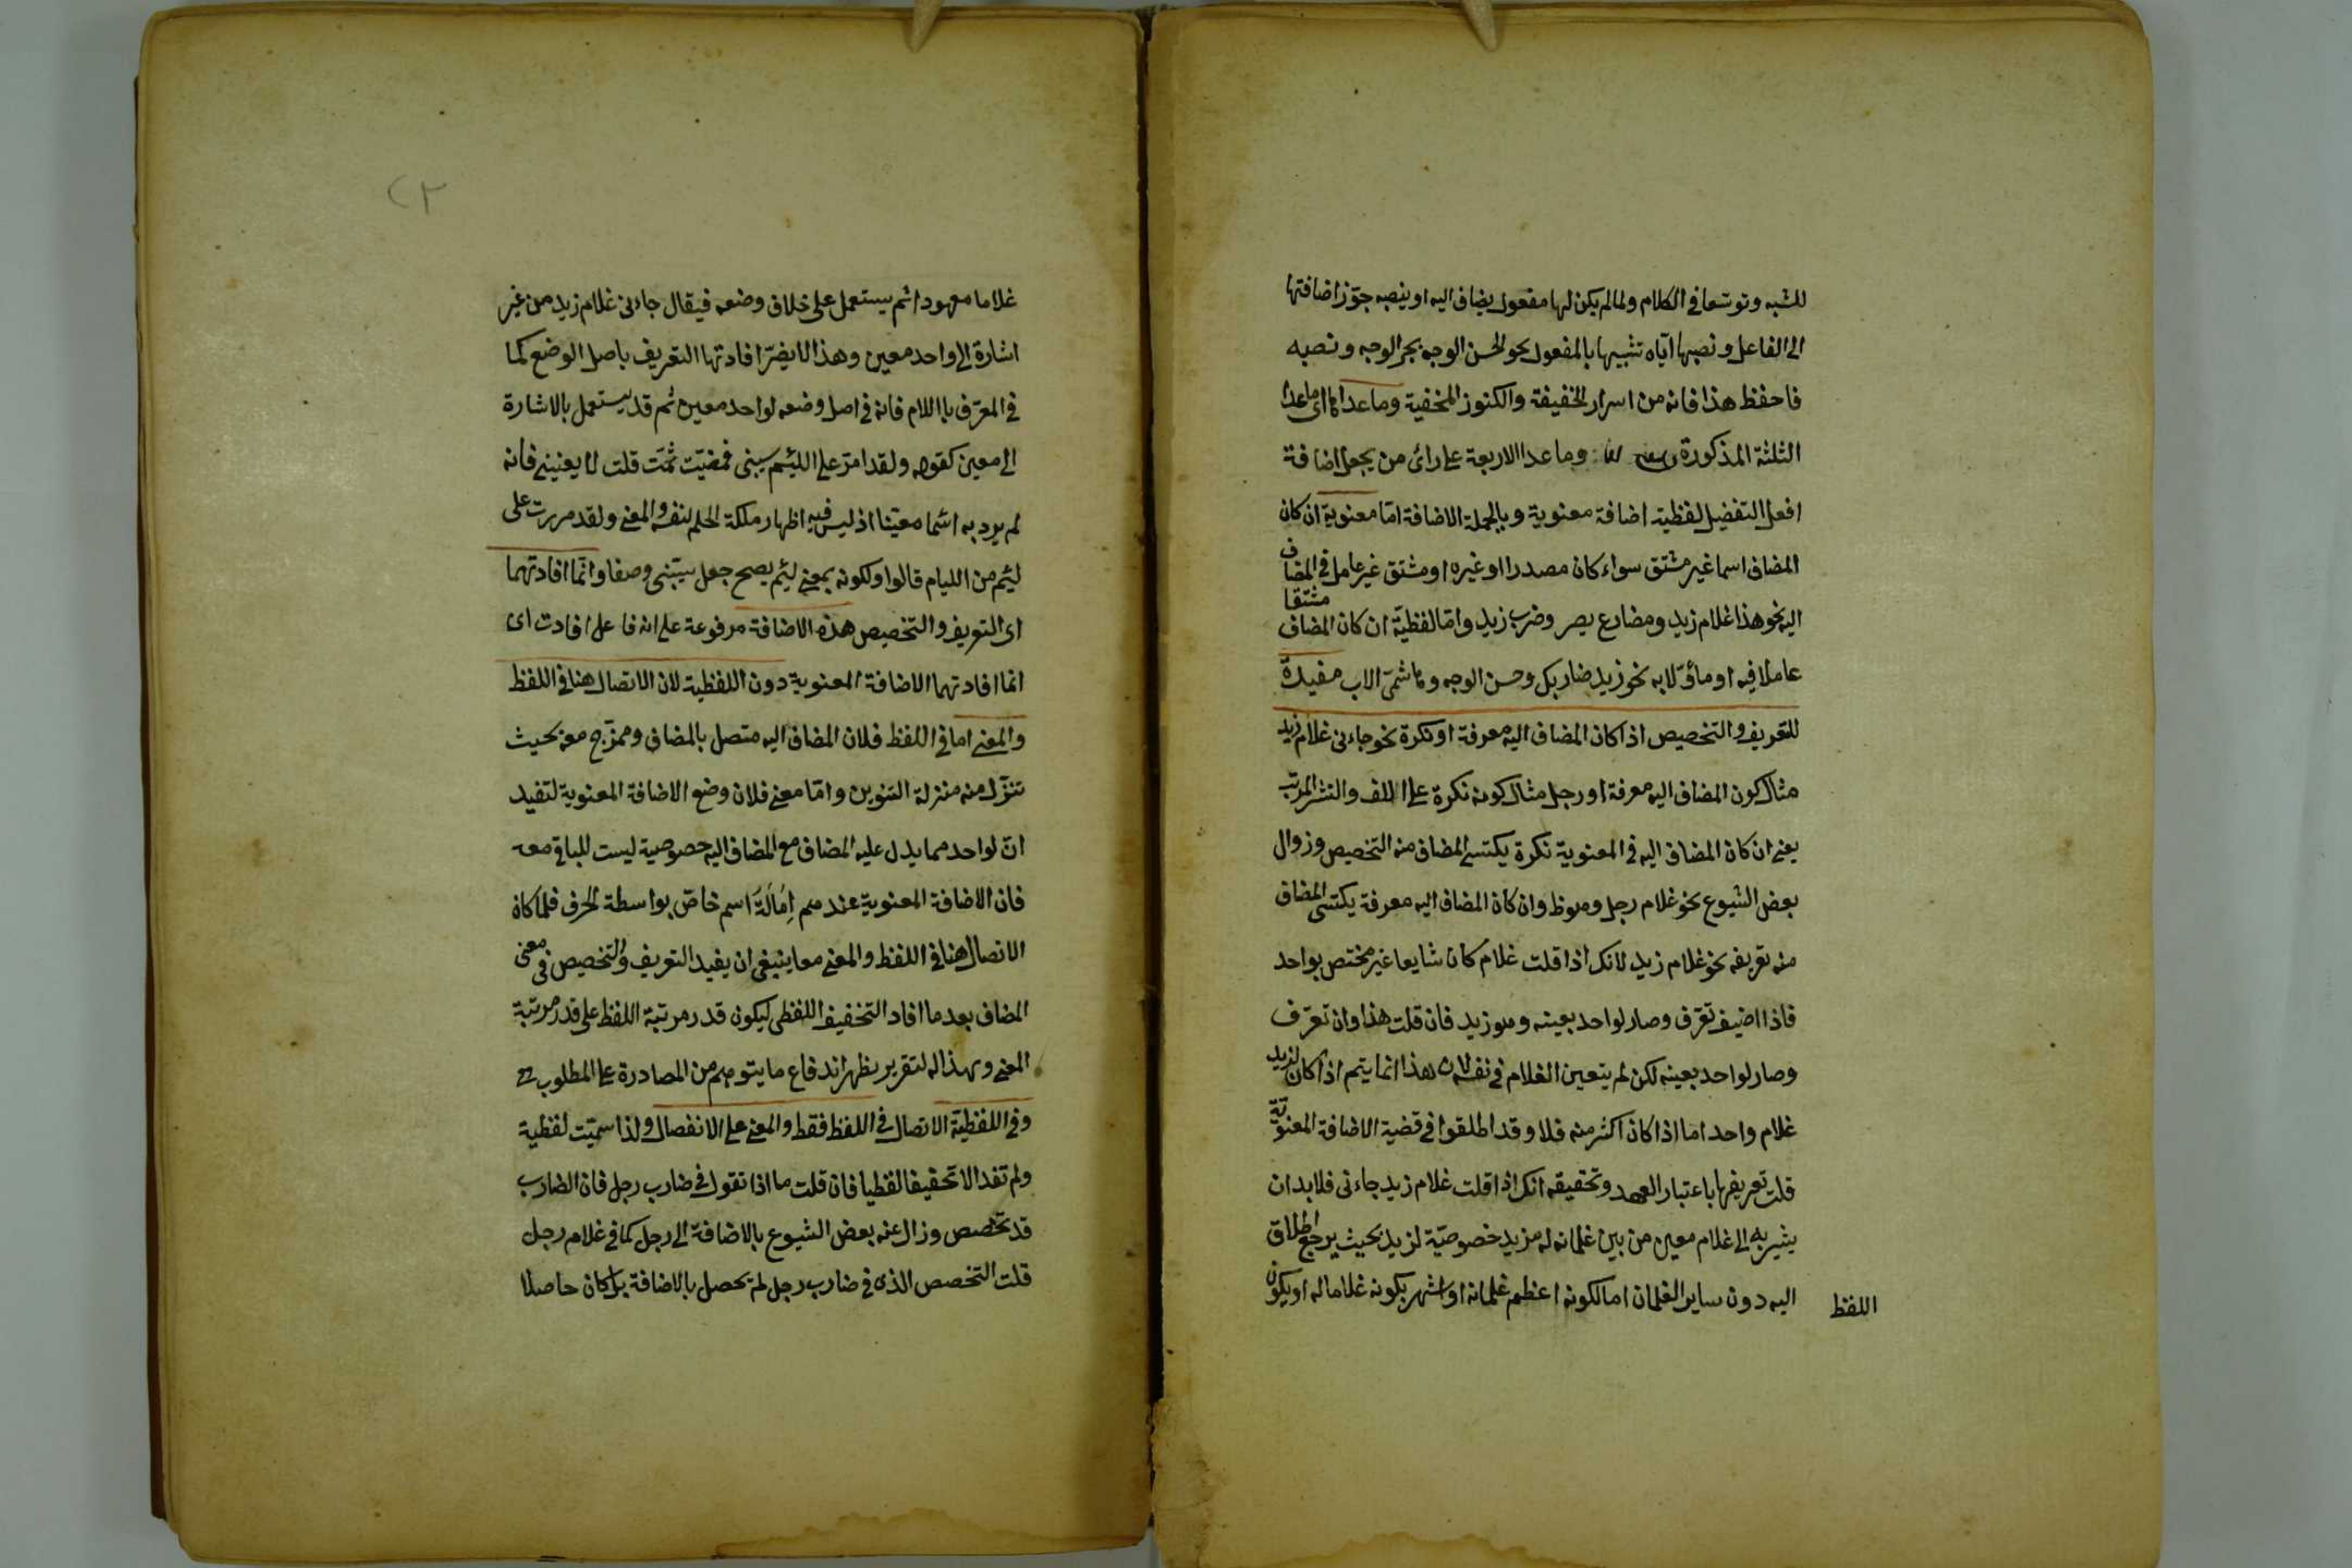 للشبه وتوسّعا في الكلام ولما لم يكن لها مفعول يضاف اليه او ينصبه جوّز اضافتها
الى الفاعل ونصبها اياه تشبيها بالمفعول نحو الحسن الوجه بجر الوجه ونصبه
فاحفظ هذا فانه من اسرار الخفيفة والكنوز المخفية وما عداها اى ما عدا
الثلثة المذكورة وما عدا الاربعة على رائ من يجعل اضافة
افعل التفضيل لفظية اضافة معنوية وبالجملة الاضافة امّا معنوية ان كان
المضاف اسما غير مشتق سواء كان مصدرا او غيره او مشتق غير عامل في المضاف
اليه نحو هذا غلام زيد ومضارع بصر وضرب زيد وامّا لفظيّة ان كان المضاف مشتقا
عاملا فيه او مأوّلا به نحو زيد ضاربك وحسن الوجه وهاشمىّ الاب مفيدة
للتعريف والتخصيص اذا كان المضاف اليه معرفة او نكرة نحو جاءنى غلام زيد
مثال كون المضاف اليه معرفة او رجل مثال كونه نكرة على اللف والنشر المرتب
يعنى ان كان المضاف اليه في المعنوية نكرة يكتسى المضاف منه التخصيص وزوال
بعض الشيوع نحو غلام رجل وهو ظ وان كان المضاف اليه معرفة يكتسى المضاف
منه تعريفه نحو غلام زيد لانك اذا قلت غلام كان شايعا غير مختص بواحد
فاذا اضيف تعرّف وصار لواحد بعينه وهو زيد فان قلت هذا وان تعرّف
وصار لواحد بعينه لكن لم يتعين الغلام في نفسه لان هذا انما يتم اذا كان لزيد
غلام واحد اما اذا كان اكثر منه فلا وقد اطلقوا في قضية الاضافة المعنويّة
قلت تعريفها باعتبار العهد وتحقيقه انك اذا قلت غلام زيد جاءنى فلا بد ان
يشير به الى غلام معين من بين غلمانه له مزيد خصوصيّة لزيد بحيث يرجع اطلاق
اليه دون ساير الغلمان اما لكونه اعظم غلمانه او اشهر بكونه غلاما له او يكون
اللفظ
٢٣
غلاما معهودا ثم يستعمل على خلاف وضعه فيقال جاءنى غلام زيد من غير
اشارة الى واحد معين وهذا لا يضرّ افادتها التعريف باصل الوضع كما
في المعرّف باللام فانه في اصل وضعه لواحد معين ثم قد يستعمل بلا اشارة
الى معين كقوله ولقد امرّ على اللئيم يسبنى فمضيت ثمّت قلت لا يعنينى فانه
لم يرد به اشما معيّنا اذ ليس فيه اظهار ملكة الحلم لنفسه والمعنى ولقد مررت على
لئيم من الليام قالوا ولكونه بمعنى لئيم يصح جعل يسبّنى وصفا وانّما افادتهما
اى التعريف والتخصيص هذه الاضافة مرفوعة على انه فاعل افادت اى
انما افادتهما الاضافة المعنوية دون اللفظية لان الاتصال هنا في اللفظ
والمعنى اما في اللفظ فلان المضاف اليه متصل بالمضاف وممزّج معه بحيث
تنزّل منه منزلة التنوين وامّا معنى فلان وضع الاضافة المعنوية لتفيد
انّ لواحد مما يدل عليه المضاف مع المضاف اليه خصوصية ليست للباقي معه
فان الاضافة المعنوية عندهم اِمَالَةُ اسم خاصّ بواسطة الحرف فلما كان
الاتصال هنا في اللفظ والمعنى معا ينبغى ان يفيد التعريف والتخصيص في معنى
المضاف بعد ما افاد التخفيف اللفظى ليكون قدر مرتبة اللفظ على قدر مرتبة
المعنى وبهذا التقرير يظهر اندفاع ما يتوهم من المصادرة على المطلوب
وفى اللفظيّة الاتصال في اللفظ فقط والمعنى على الانفصال ولذا سمّيت لفظية
ولم تفد الا تخفيفا لفظيا فان قلت ما اذا تقول في ضارب رجل فان الضارب
قد تخصص وزال عنه بعض الشيوع بالاضافة الى رجل كما في غلام رجل
قلت التخصص الذى في ضارب رجل لم يحصل بالاضافة بل كان حاصلا